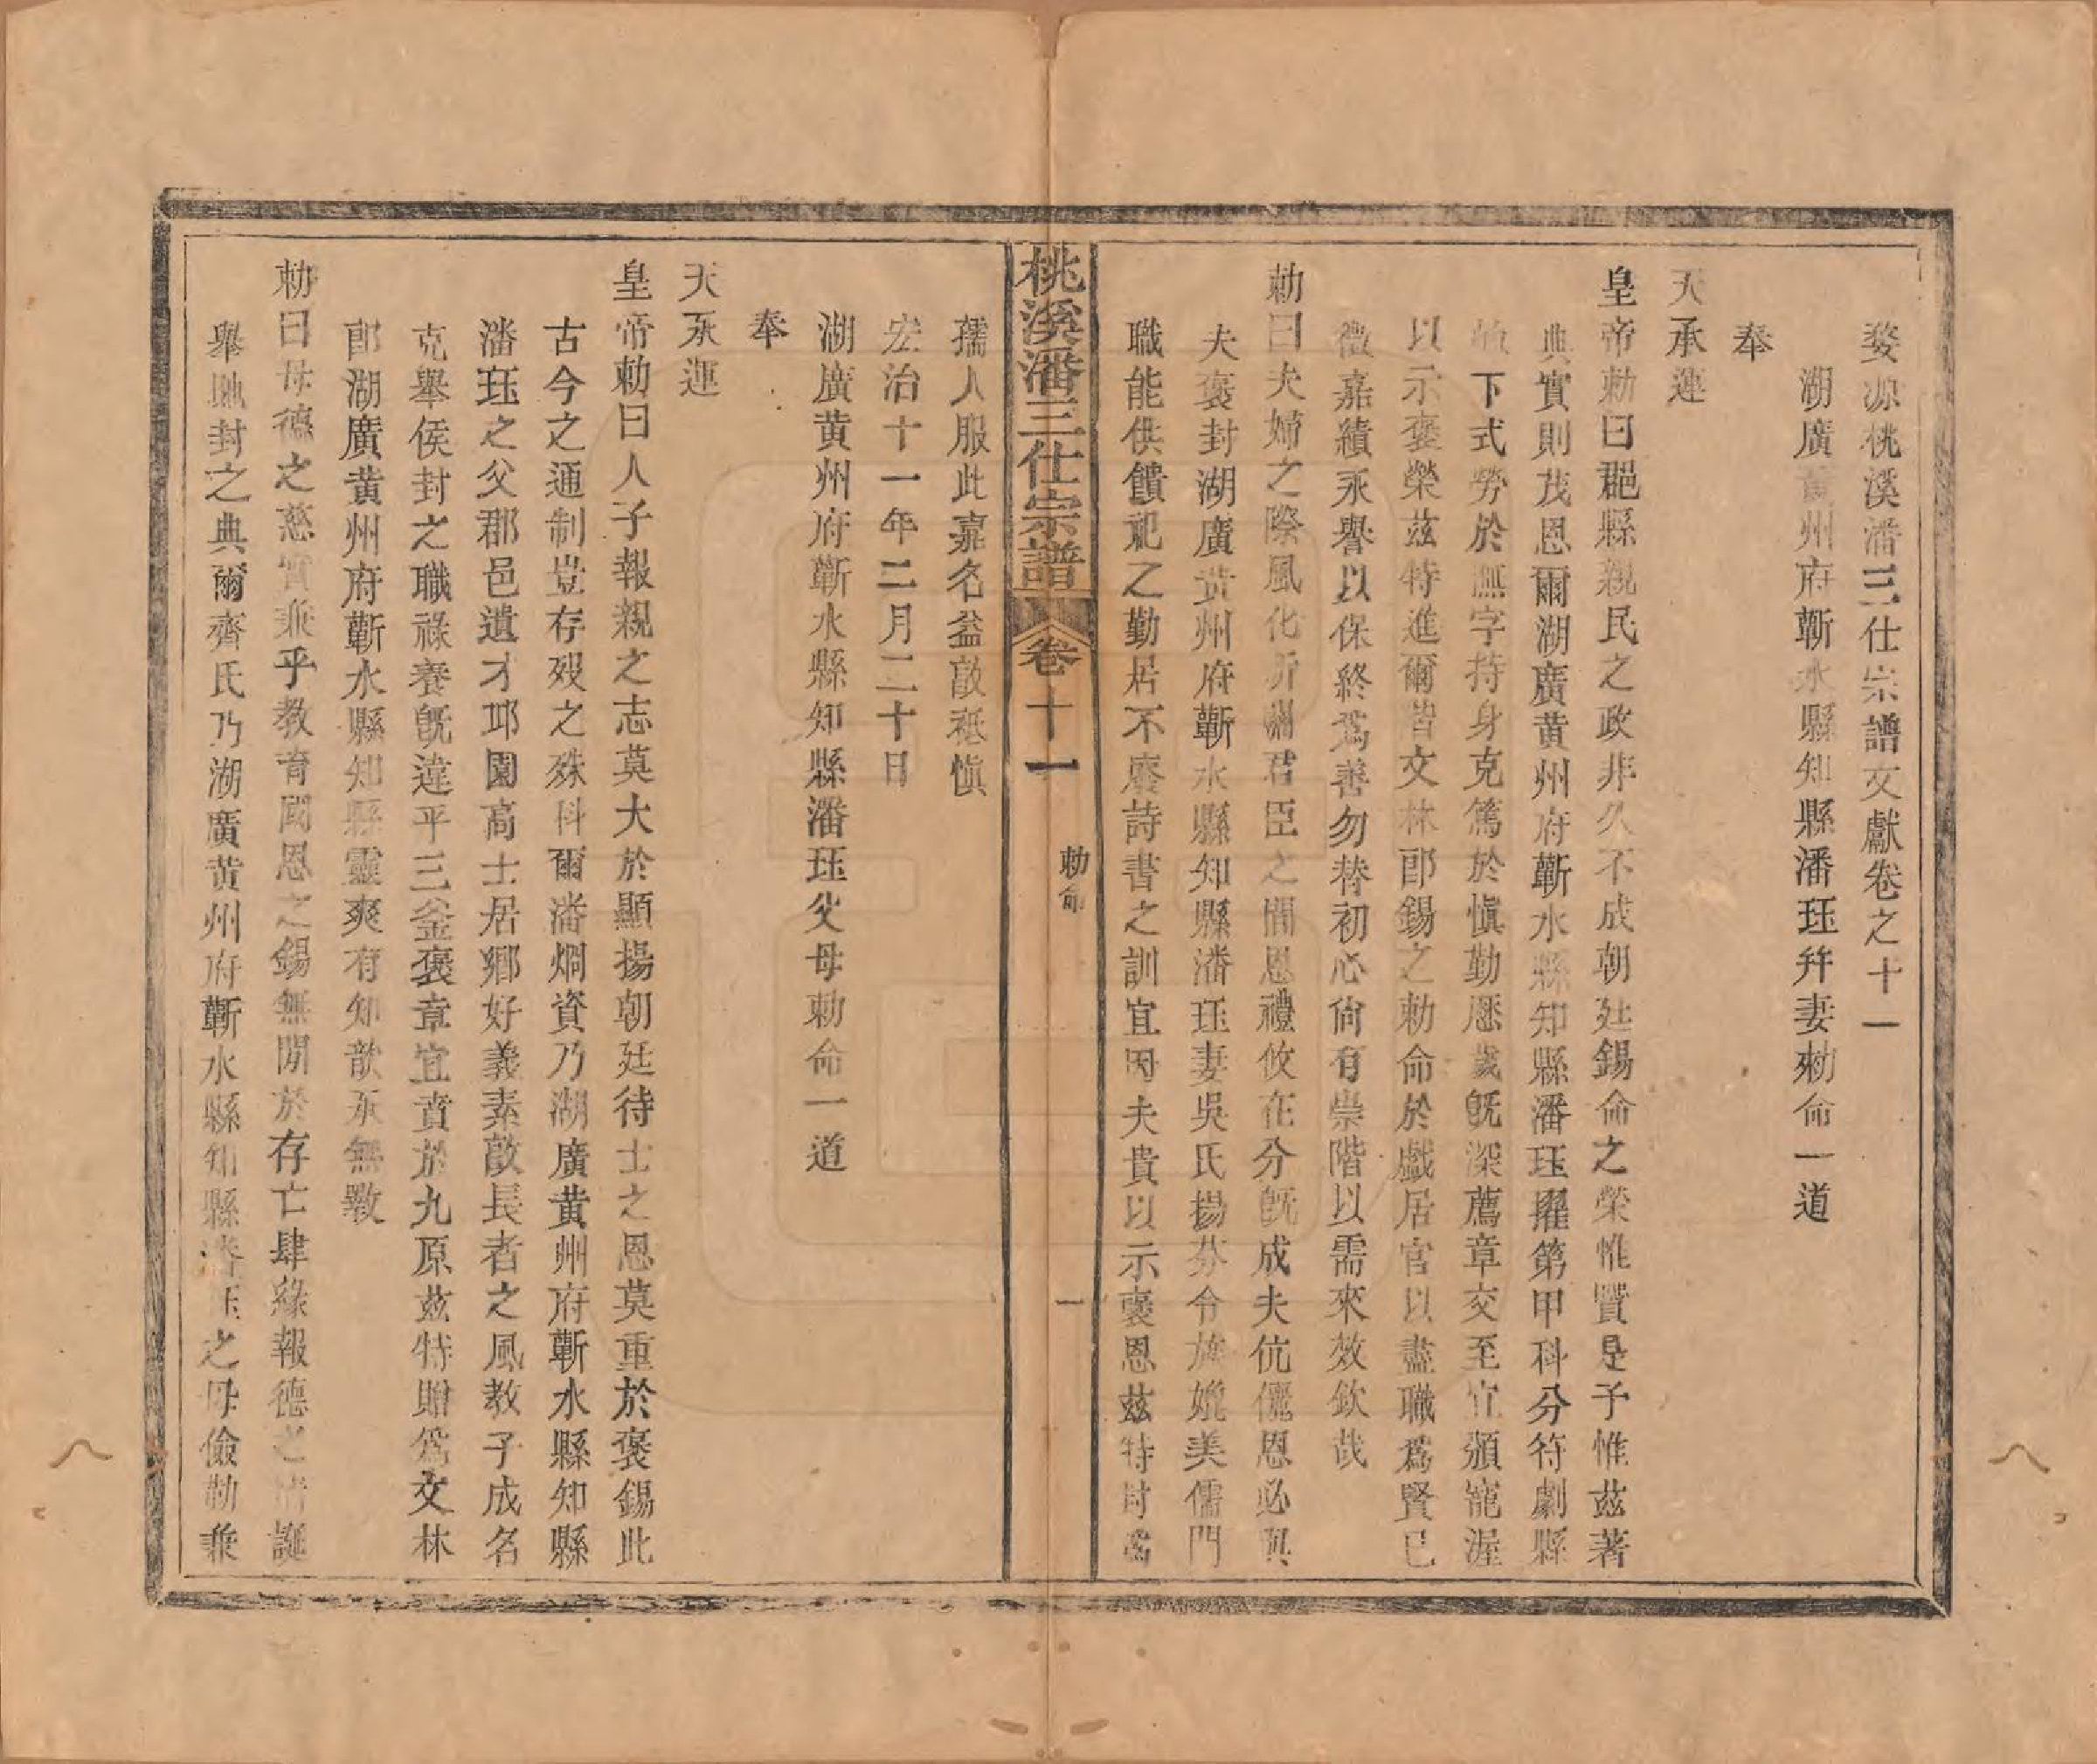 婺源桃溪潘三仕宗譜文獻卷之十一
湖廣黃州府蘄水縣知縣潘珏幷妻勑命一道
奉
天承運
皇帝勑曰郡縣親民之政非久不成朝廷錫命之榮惟賢是予惟茲著
典實則茂恩爾湖廣黃州府蘄水縣知縣潘珏擢第甲科分符劇縣
下式勞於撫字持身克篤於慎勤歷歲旣深薦章交至宜頒寵渥
以示褒榮茲特進爾階文林郎錫之勑命於戲居官以盡職爲賢已
徵嘉績永譽以保終爲善勿替初心尙有崇階以需來效欽哉
勑曰夫婦之際風化所關君臣之間恩禮攸在分旣成夫伉儷恩必與
夫褒封湖廣黃州府蘄水縣知縣潘珏妻吳氏揚芬令族媲美儒門
職能供饋祀之勤居不廢詩書之訓宜因夫貴以示褒恩茲特封爲
桃溪潘三仕宗譜 卷十一 勑命 一
孺人服此嘉名益敬祗愼
宏治十一年二月二十日
湖廣黃州府蘄水縣知縣潘珏父母勑命一道
奉
天承運
皇帝勑曰人子報親之志莫大於顯揚朝廷待士之恩莫重於褒錫此
古今之通制豈存歿之殊科爾潘烱資乃湖廣黃州府蘄水縣知縣
潘珏之父郡邑遺才邱園高士居鄉好義素敬長者之風教子成名
克舉侯封之職祿養旣違平三釜褒章宜賁於九原茲特贈爲文林
郎湖廣黃州府蘄水縣知縣靈爽有知歆承無斁
勑曰母德之慈實兼乎教育國恩之錫無間於存亡肆緣報德之情誕
舉貤封之典爾齊氏乃湖廣黃州府蘄水縣知縣潘珏之母儉勤兼